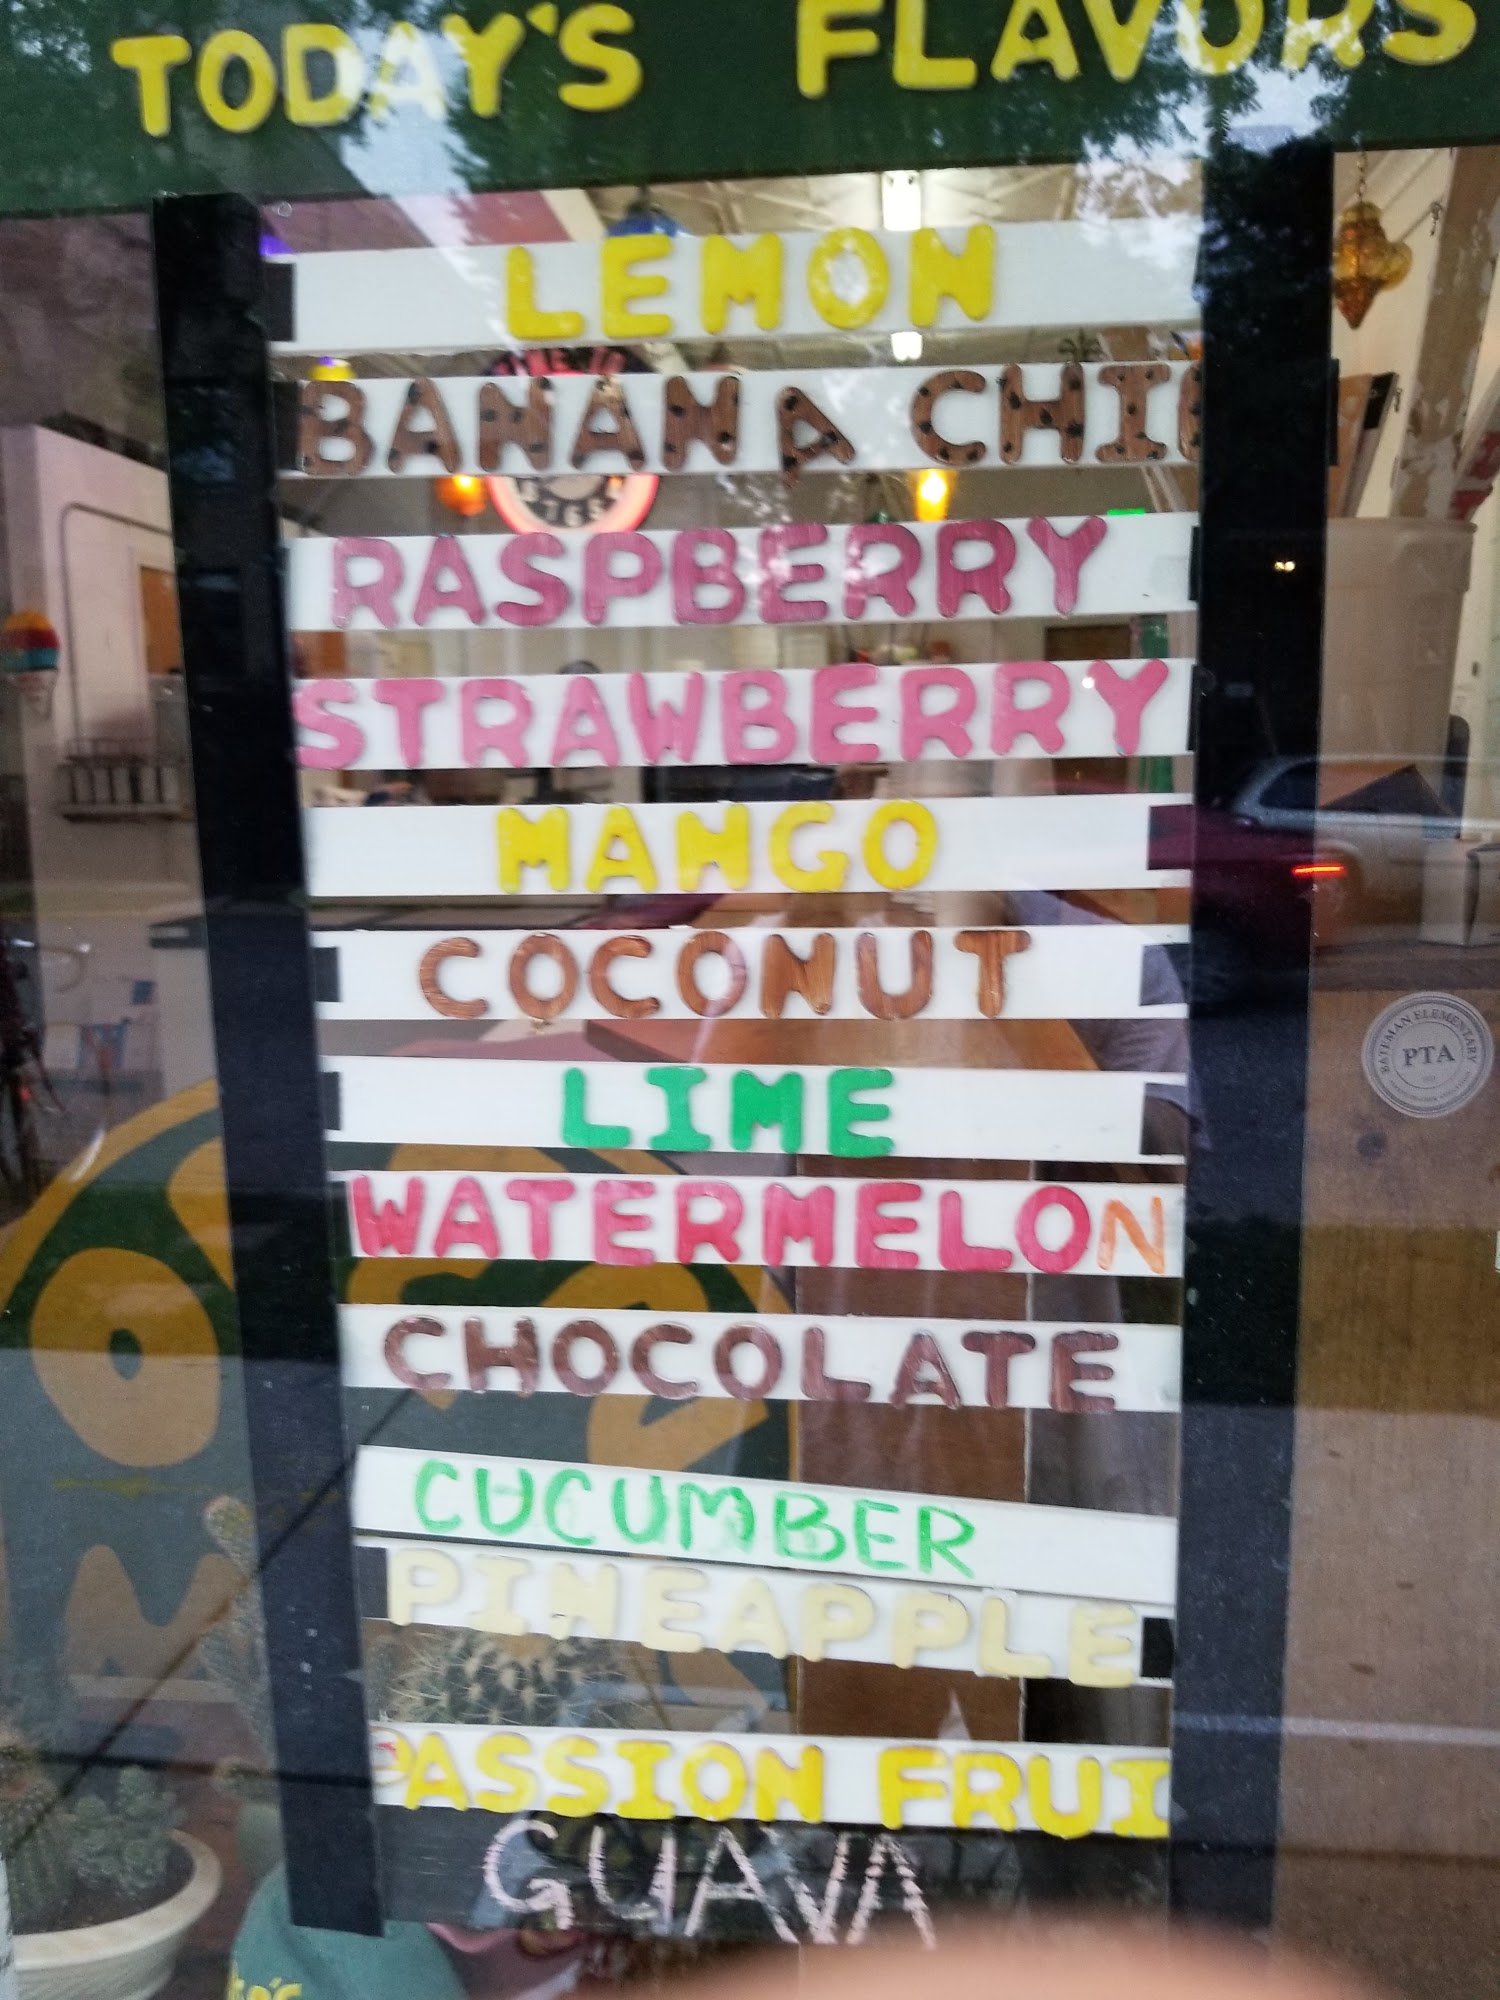 TODAY'S FLAVORS
LEMON
BANANA CHI
RASPBERRY
STRAWBERRY
MANGO
COCONUT
LIME
WATERMELON
CHOCOLATE
CUCUMBER
PINEAPPLE
PASSION FRUI
GUAVA
BATEMAN ELEMENTARY
PTA